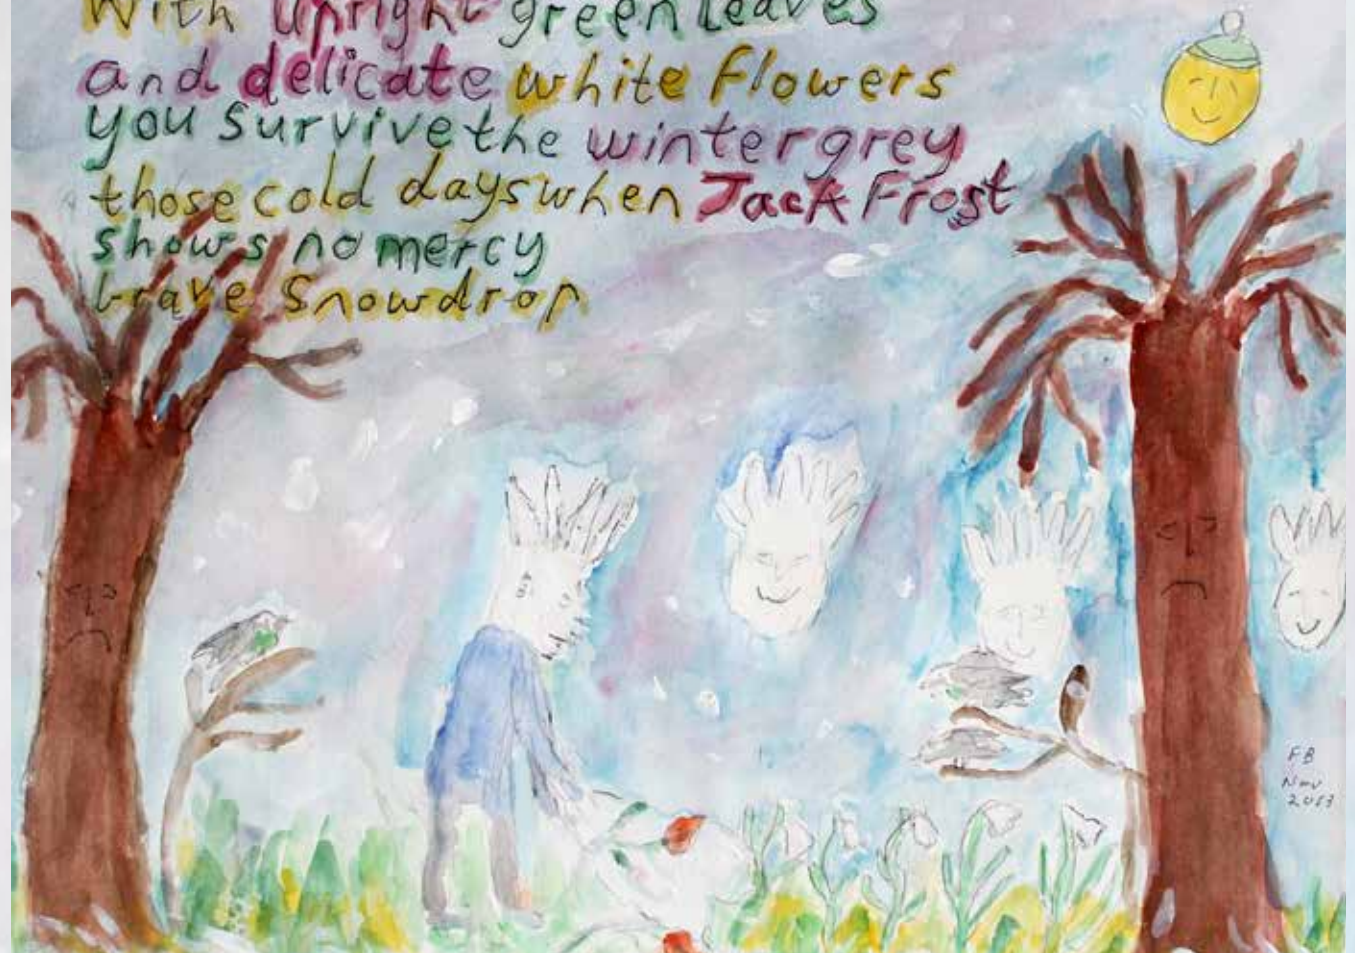 With upright green leaves
and delicate white flowers
you survive the winter grey
those cold days when Jack Frost
shows no mercy
brave Snowdrop
FB
Nov
2013